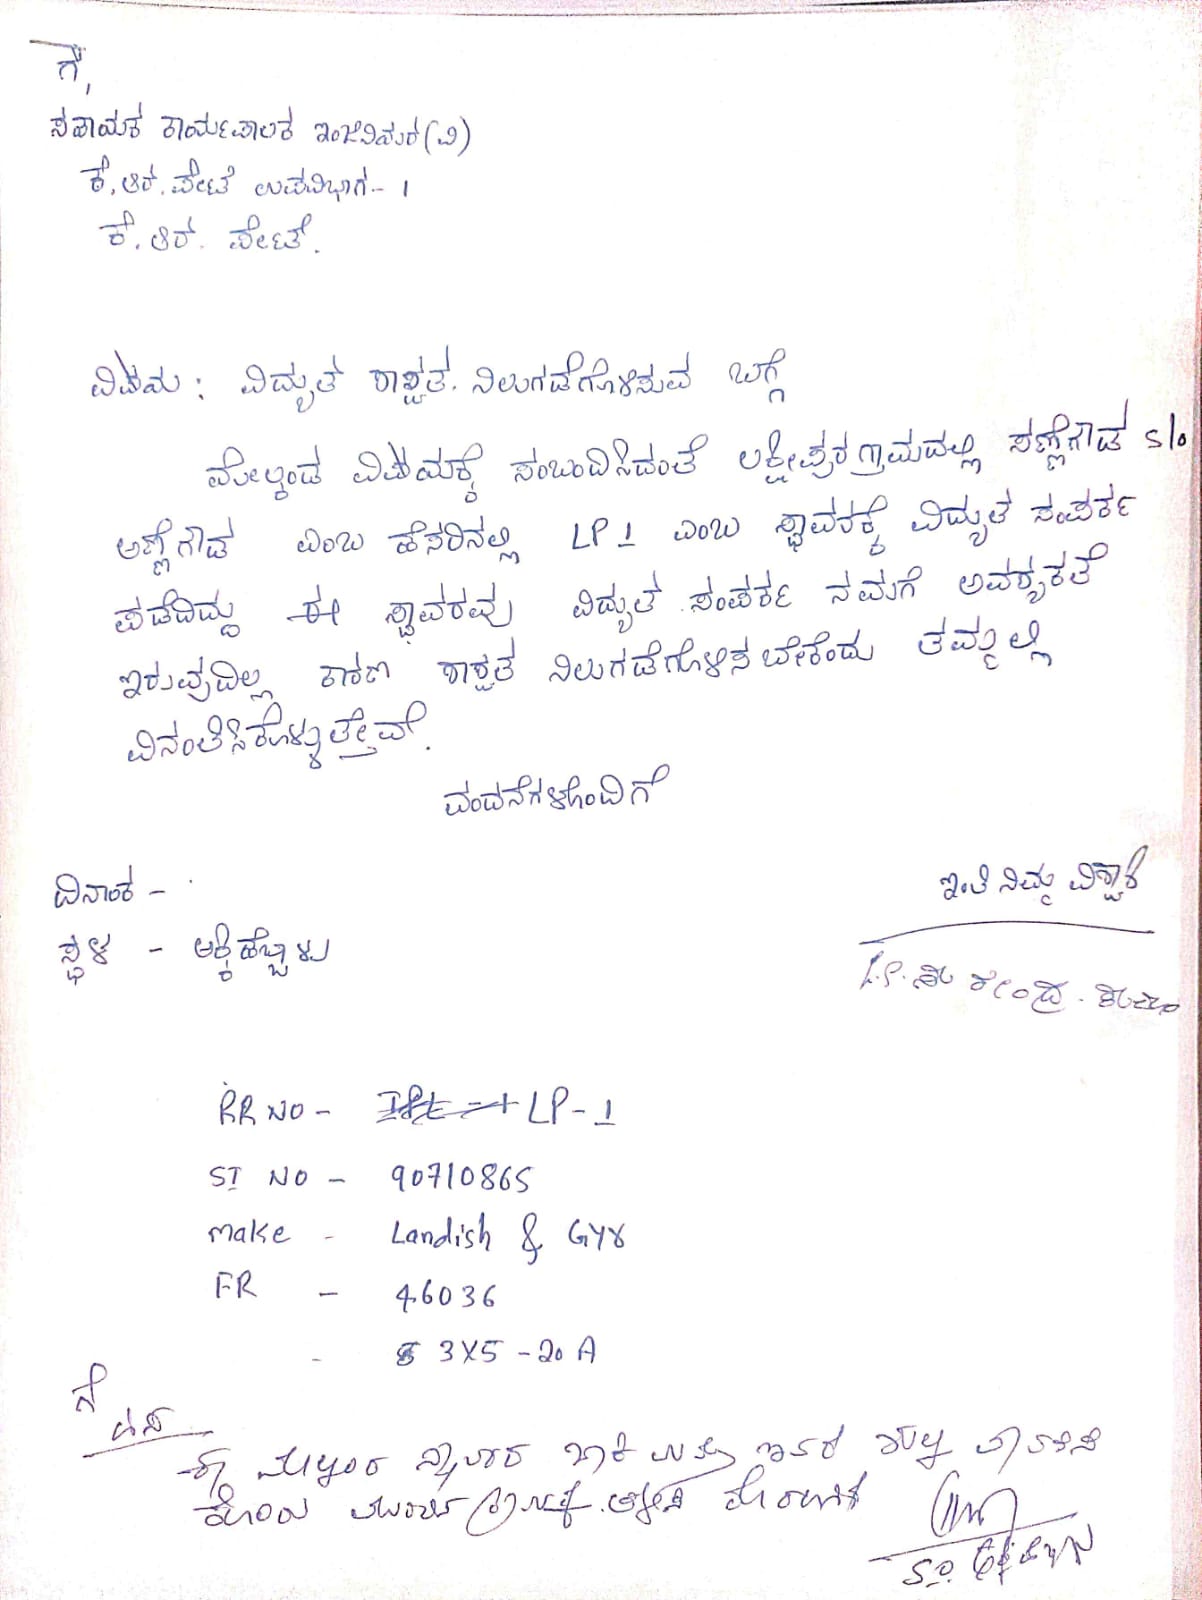 ಗೆ,
ಸಹಾಯಕ ಕಾರ್ಯಪಾಲಕ ಇಂಜಿನಿಯರ (ವಿ)
ಕೆ.ಆರ್.ಪೇಟೆ ಉಪವಿಭಾಗ-1
ಕೆ.ಆರ್. ಪೇಟೆ.
ವಿಷಯ: ವಿದ್ಯುತ್ ಶಾಶ್ವತ ನಿಲುಗಡೆಗೊಳಿಸುವ ಬಗ್ಗೆ
ಮೇಲ್ಕಂಡ ವಿಷಯಕ್ಕೆ ಸಂಬಂದಿಸಿದಂತೆ ಲಕ್ಷ್ಮೀಪುರ ಗ್ರಾಮದಲ್ಲಿ ಸಣ್ಣೇಗೌಡ S/o
ಅಣ್ಣೇಗೌಡ ಎಂಬ ಹೆಸರಿನಲ್ಲಿ LP 1 ಎಂಬ ಸ್ಥಾವರಕ್ಕೆ ವಿದ್ಯುತ ಸಂಪರ್ಕ
ಪಡೆದಿದ್ದು ಈ ಸ್ಥಾವರವು ವಿದ್ಯುತ ಸಂಪರ್ಕ ನಮಗೆ ಅವಶ್ಯಕತೆ
ಇರುವುದಿಲ್ಲ ಕಾರಣ ಶಾಶ್ವತ ನಿಲುಗಡೆಗೊಳಿಸಬೇಕೆಂದು ತಮ್ಮಲ್ಲಿ
ವಿನಂತಿಸಿಕೊಳ್ಳುತ್ತೇವೆ.
ವಂದನೆಗಳೊಂದಿಗೆ
ದಿನಾಂಕ -
ಸ್ಥಳ - ಅಕ್ಕಿಹೆಬ್ಬಾಳು
ಇಂತಿ ನಿಮ್ಮ ವಿಶ್ವಾಸಿ
RR NO - LP-1
SI NO - 90710865
make - Landish & GYR
FR - 46036
- 3X5-20A
ಗೆ